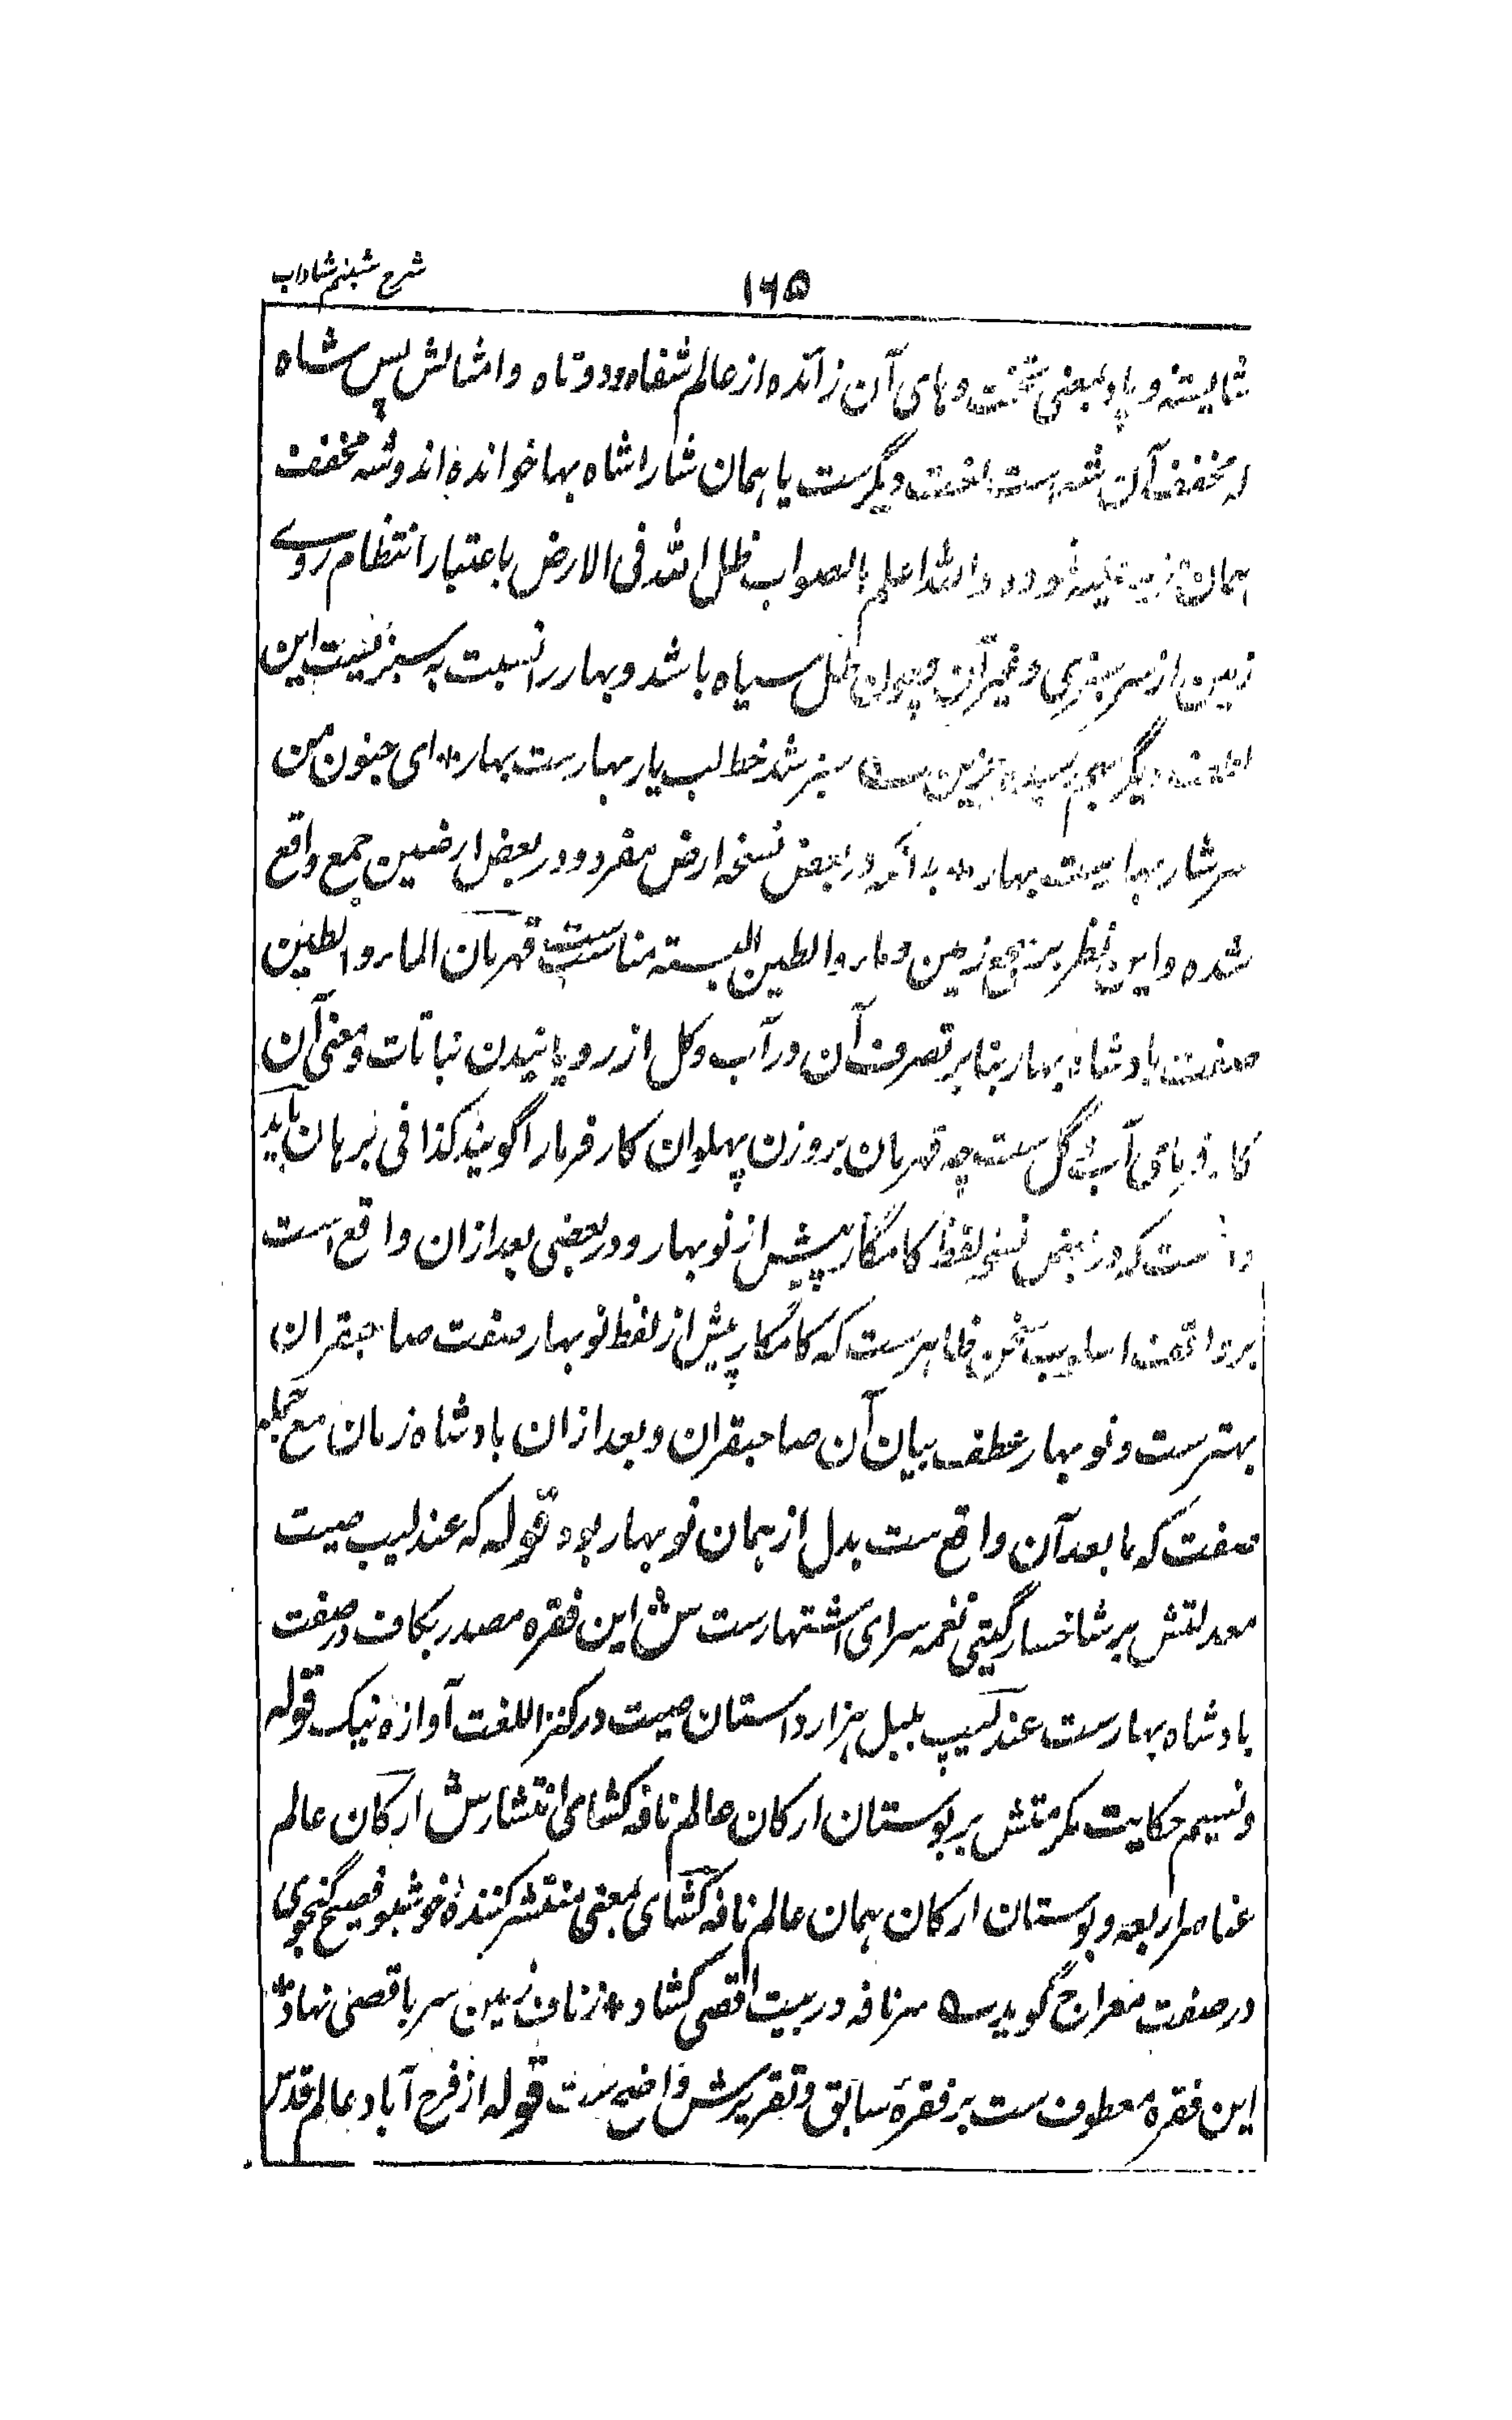 ۱۶۵
شرح شبنم شاداب
شایسته و پاد بمعنی تخت و های آن زائده از عالم شفاه و دوتاه و امثالش پس شاه
که مخفف آن شه است لغت دیگرست یا همان شا را شاه بها خوانده اند و شه مخفف
همان والله اعلم بالصواب ظل الله فی الارض باعتبار انتظام روے
زمین از سرسبزی و غیر آن و چون ظل سیاه باشد و بهار را نسبت به سبزیست این
دیگر سبز شد خط لب یار بهارست بهار * ای جنون من
سرشار بهار * بدانکه در بعض نسخه ارض مفرد و در بعض ارضین جمع واقع
شده و این نظر بر زمین و ماء و الطین البسته مناسبست قهرمان الماء و الطین
صفت بادشاه بهار بنا بر تصرف آن در آب و گل از رویانیدن نباتات و معنی آن
کارفرمای آب و گل ست چه قهرمان بر وزن پهلوان کارفرما را گویند کذا فی برهان باید
دانست که در بعض نسخ لفظ کامگار پیش از نوبهار و در بعضی بعد ازان واقع است
بر واقف اسالیب سخن ظاهرست که کامگار پیش از لفظ نوبهار صفت صاحبقران
بهترست و نوبهار عطف بیان آن صاحبقران و بعد ازان بادشاه زمان مع جمله
صفت که ما بعد آن واقع ست بدل از همان نوبهار بود قوله که عندلیب صیت
معدلتش بر شاخسار گیتی نغمه سرای اشتهارست ش این فقره مصدر بکاف در صفت
بادشاه بهارست عندلیب بلبل هزار داستان صیت در کنز اللغت آوازه نیک قوله
و نسیم حکایت مکرمتش بر بوستان ارکان عالم نافه کشای انتشار ش ارکان عالم
عناصر اربعه و بوستان ارکان همان عالم نافه کشای بمعنی منتشر کنندۀ خوشبو فصیح گنجوی
در صفت معراج گوید ــه سر نافه در بیت اقصی کشاد * ز ناف زمین سر باقصی نهاد *
این فقره معطوف ست بر فقرۀ سابق و تقریرش واضح ست قوله از فرح آباد عالم قدس